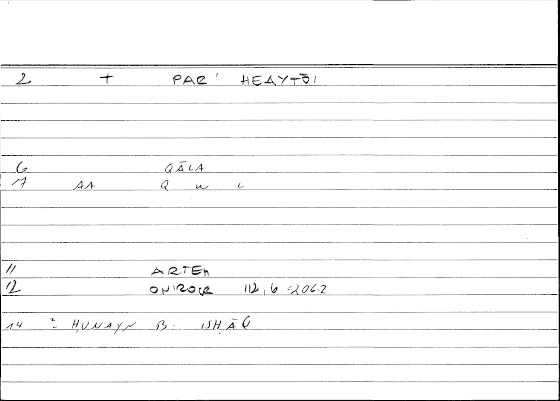 2 + PAR' HEAYTŌI
6 QĀLA
17 AA Q w L
11 ARTEM
12 ONIROCR 112,6 = 206.2
14 = ḤUNAYN B. ISḤĀQ